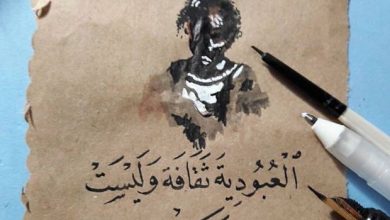 اَلْعُبُودِيَةَ ثَقَافَة وَلَيْسَتْ